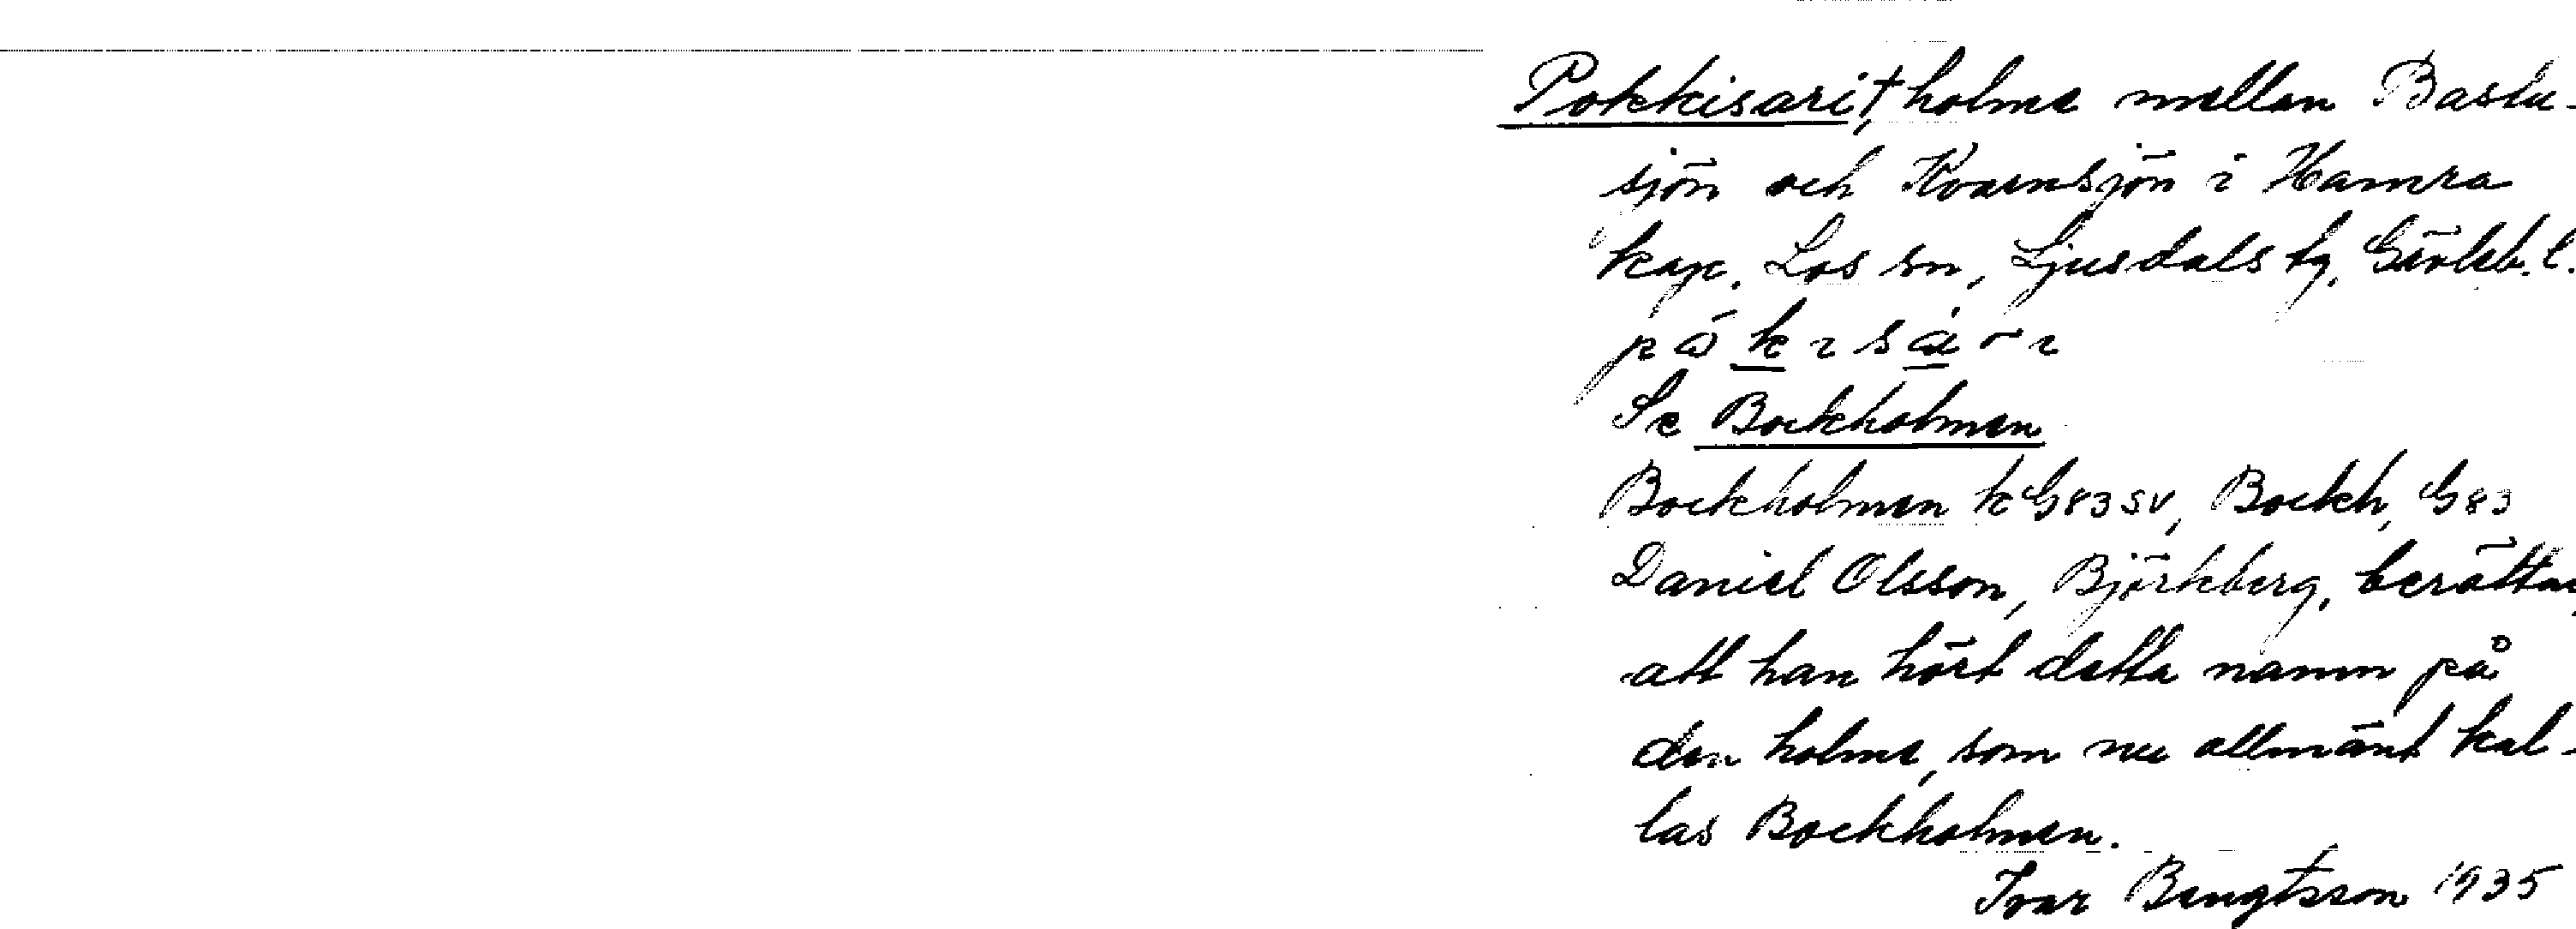 Pokkisari†, holme mellan Bastu-
sjön och Kvarnsjön i Hamra
kap. Los sn, Ljusdals tg, Gävleb. l.
Se Bockholmen
Bockholmen k G83 SV, Bockh, G83
Daniel Olsson, Björkberg, berättar,
att han hört detta namn på
den holme, som nu allmänt kal-
las Bockholmen.
Ivar Bengtsson 1935